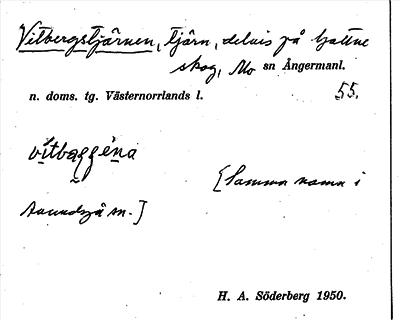 Vitbergstjärnen, tjärn, delvis på
skog, Mo sn Ångermanl.
n. doms. tg. Västernorrlands l. 55.
[Samma namn i
sn.]
H. A. Söderberg 1950.